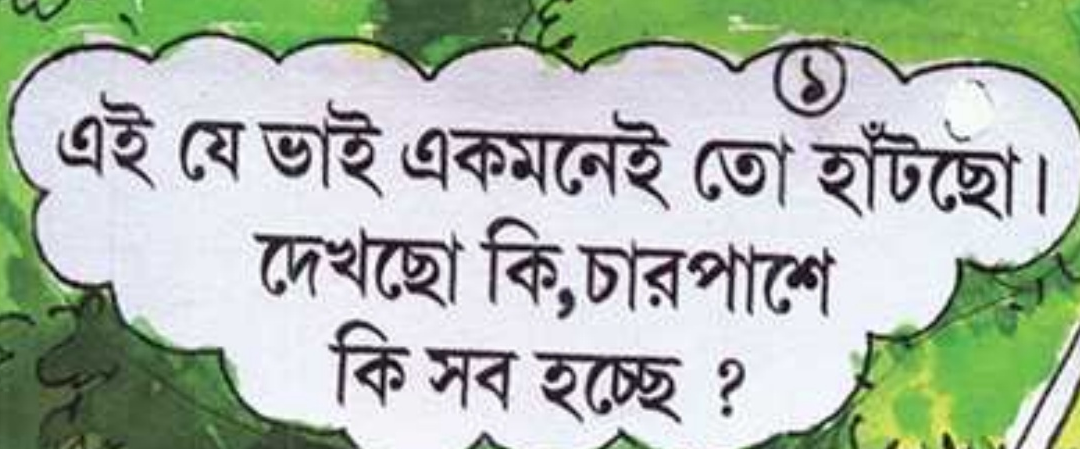 ১
এই যে ভাই একমনেই তো হাঁটছো।
দেখছো কি,চারপাশে
কি সব হচ্ছে ?